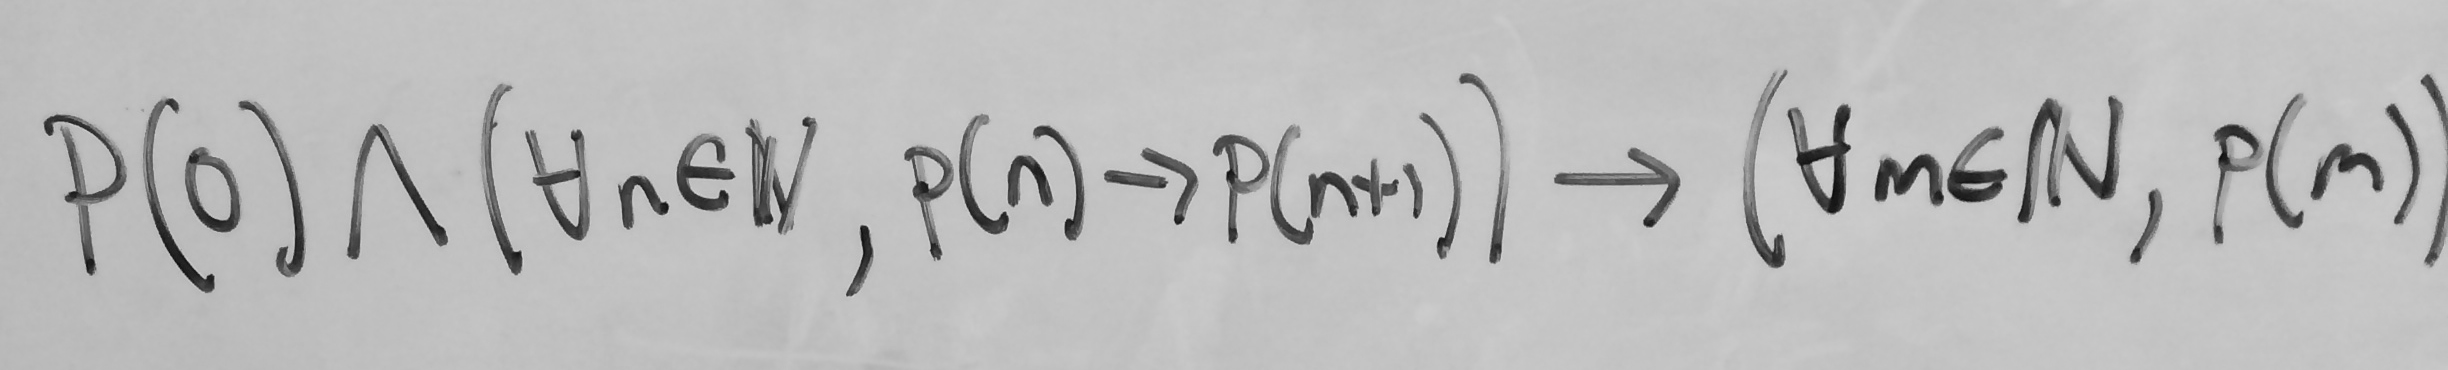 P(0) ∧ (∀n∈ℕ, P(n)→P(n+1)) → (∀m∈ℕ, P(m))